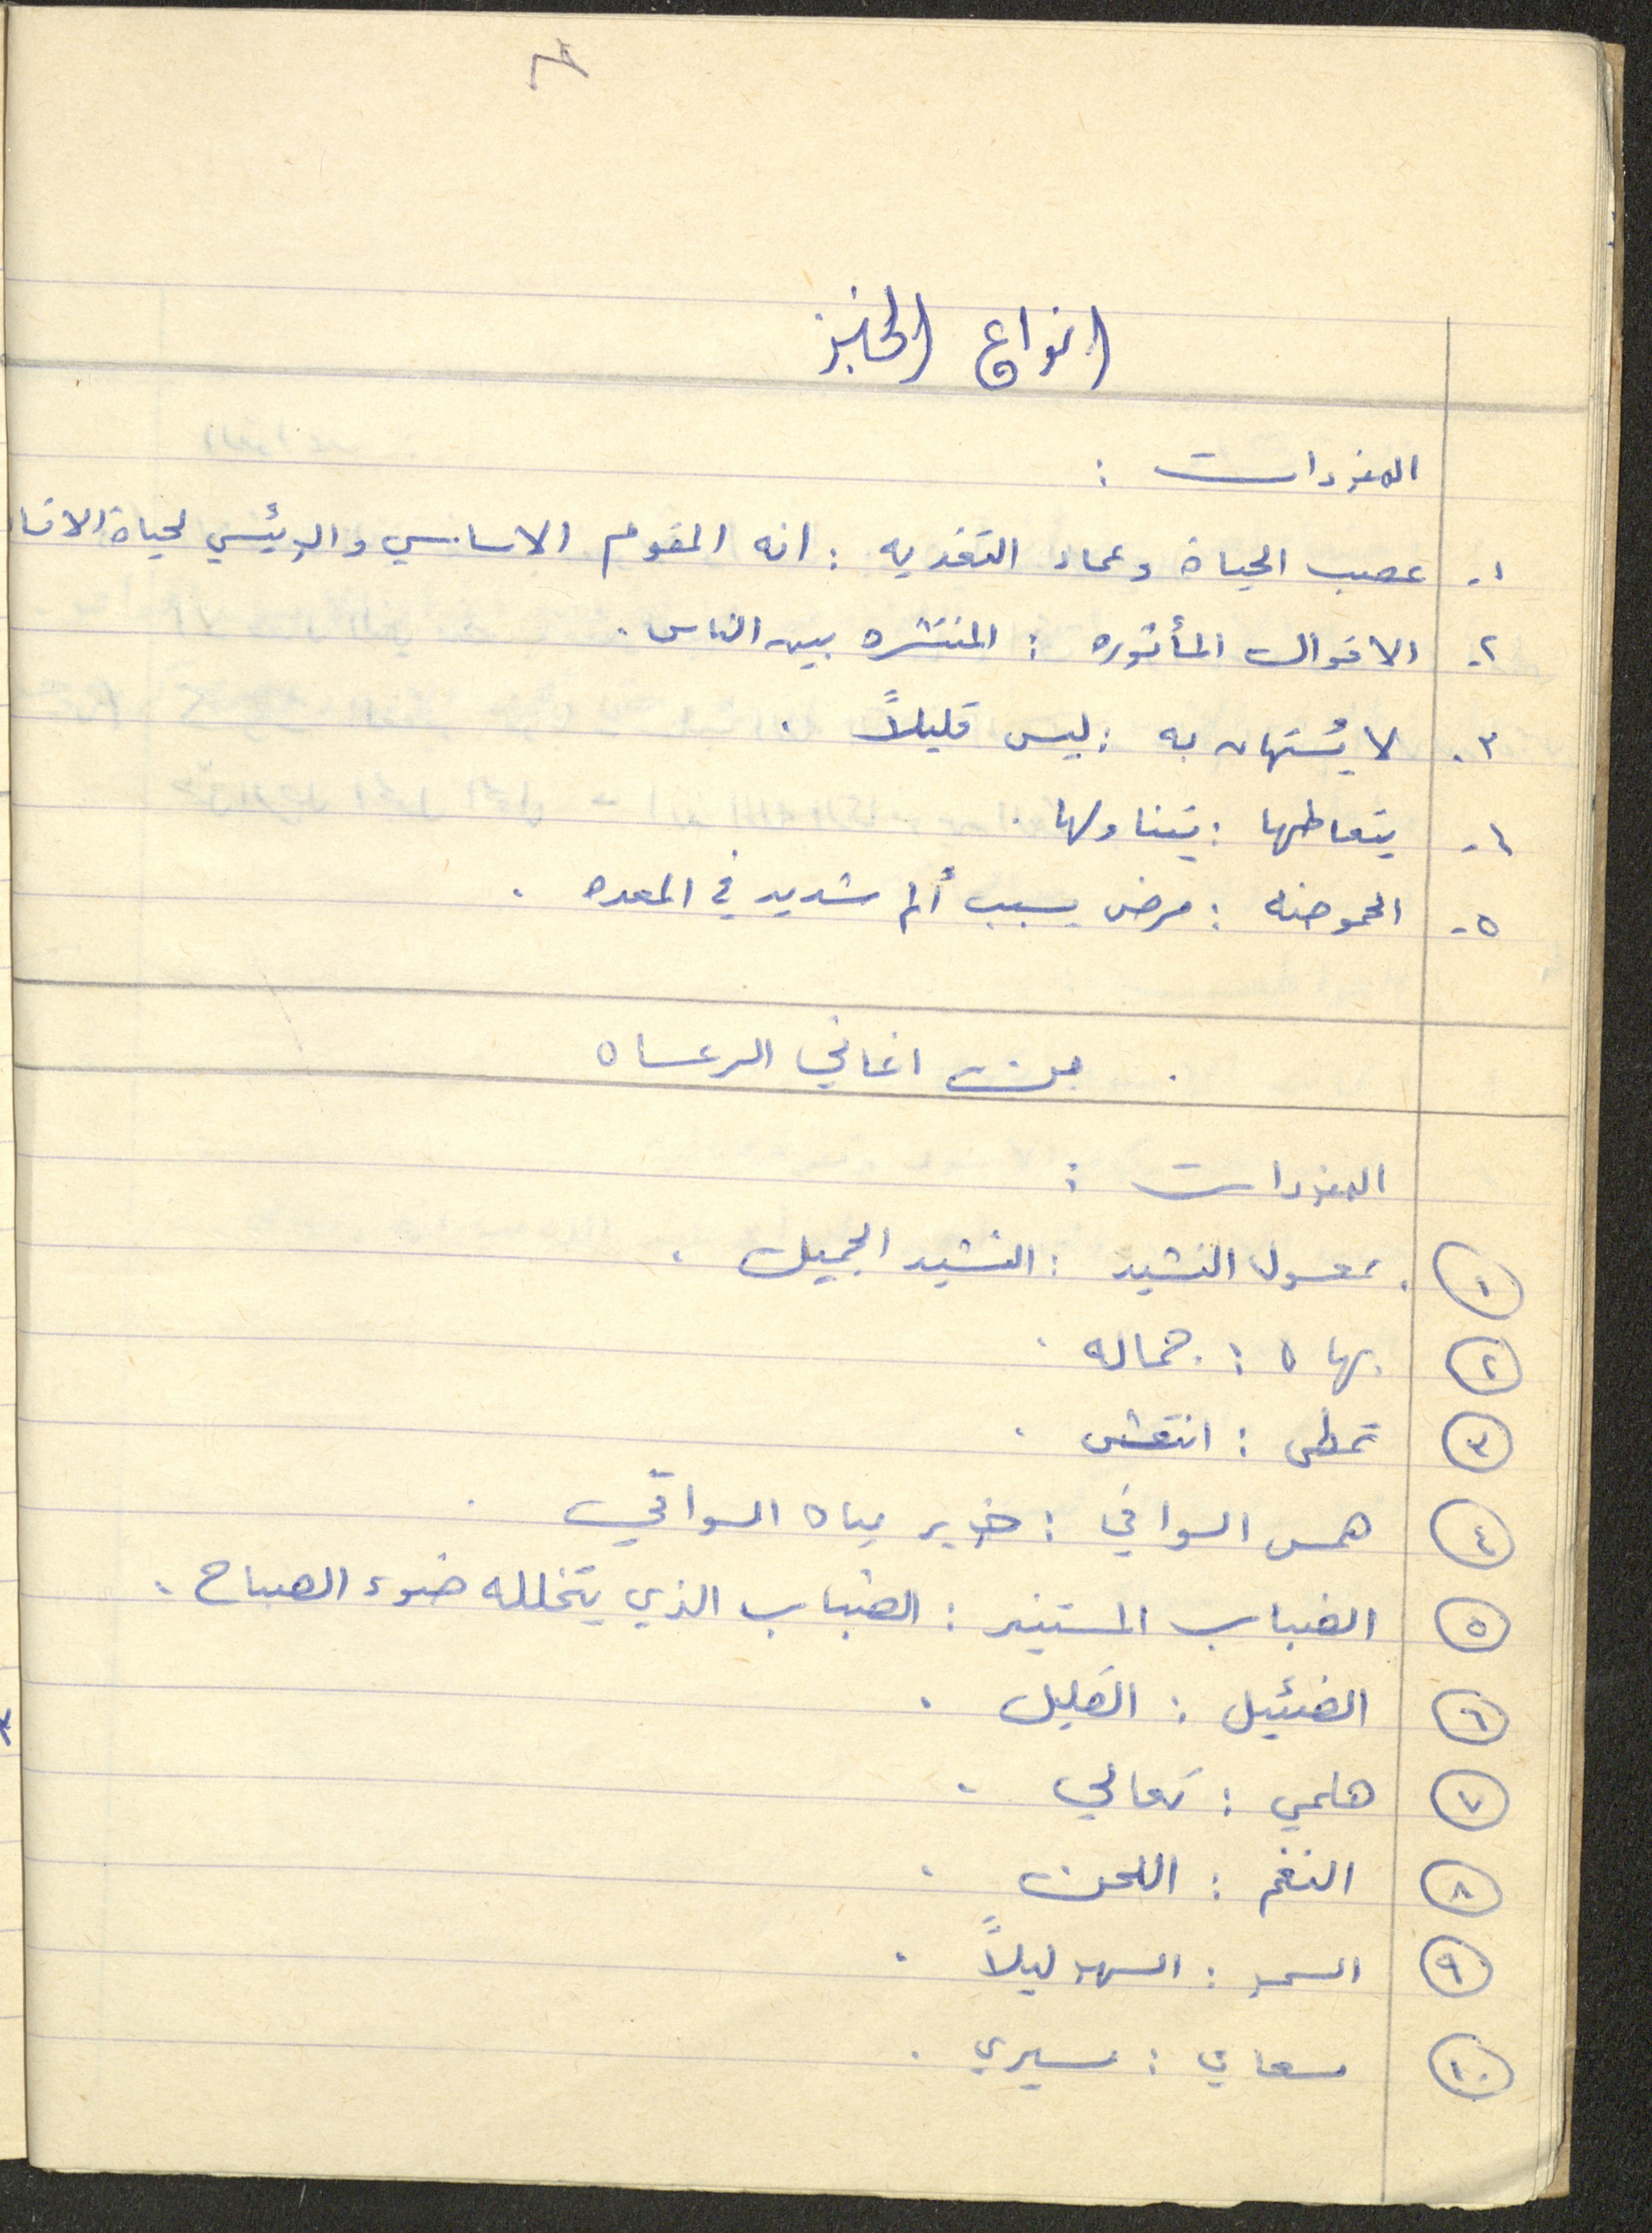 انواع الخبز
المفردات :
١- عصب الحياة وعماد التغذيه : انه المقوم الاساسي والرئيسي لحياة الانسا
٢- الاقوال المأثوره : المنتشره بين الناس .
٣- لا يُستهان به : ليس قليلاً .
٤- يتعاطها : يتناولها .
٥- الحموضه : مرض يسبب ألم شديد في المعده .
من اغاني الرعاه
المفردات :
١ معسول النشيد : النشيد الجميل .
٢ بهاه : جماله .
٣ تمطى : انتعش .
٤ همس السواقي : خرير مياه السواقي .
٥ الضباب المستنير : الضباب الذي يتخلله ضوء الصباح .
٦ الضئيل : القليل .
٧ هلمي : تعالي .
٨ النغم : اللحن .
٩ السمر : السهر ليلاً .
١٠ مسعاي : مسيري .